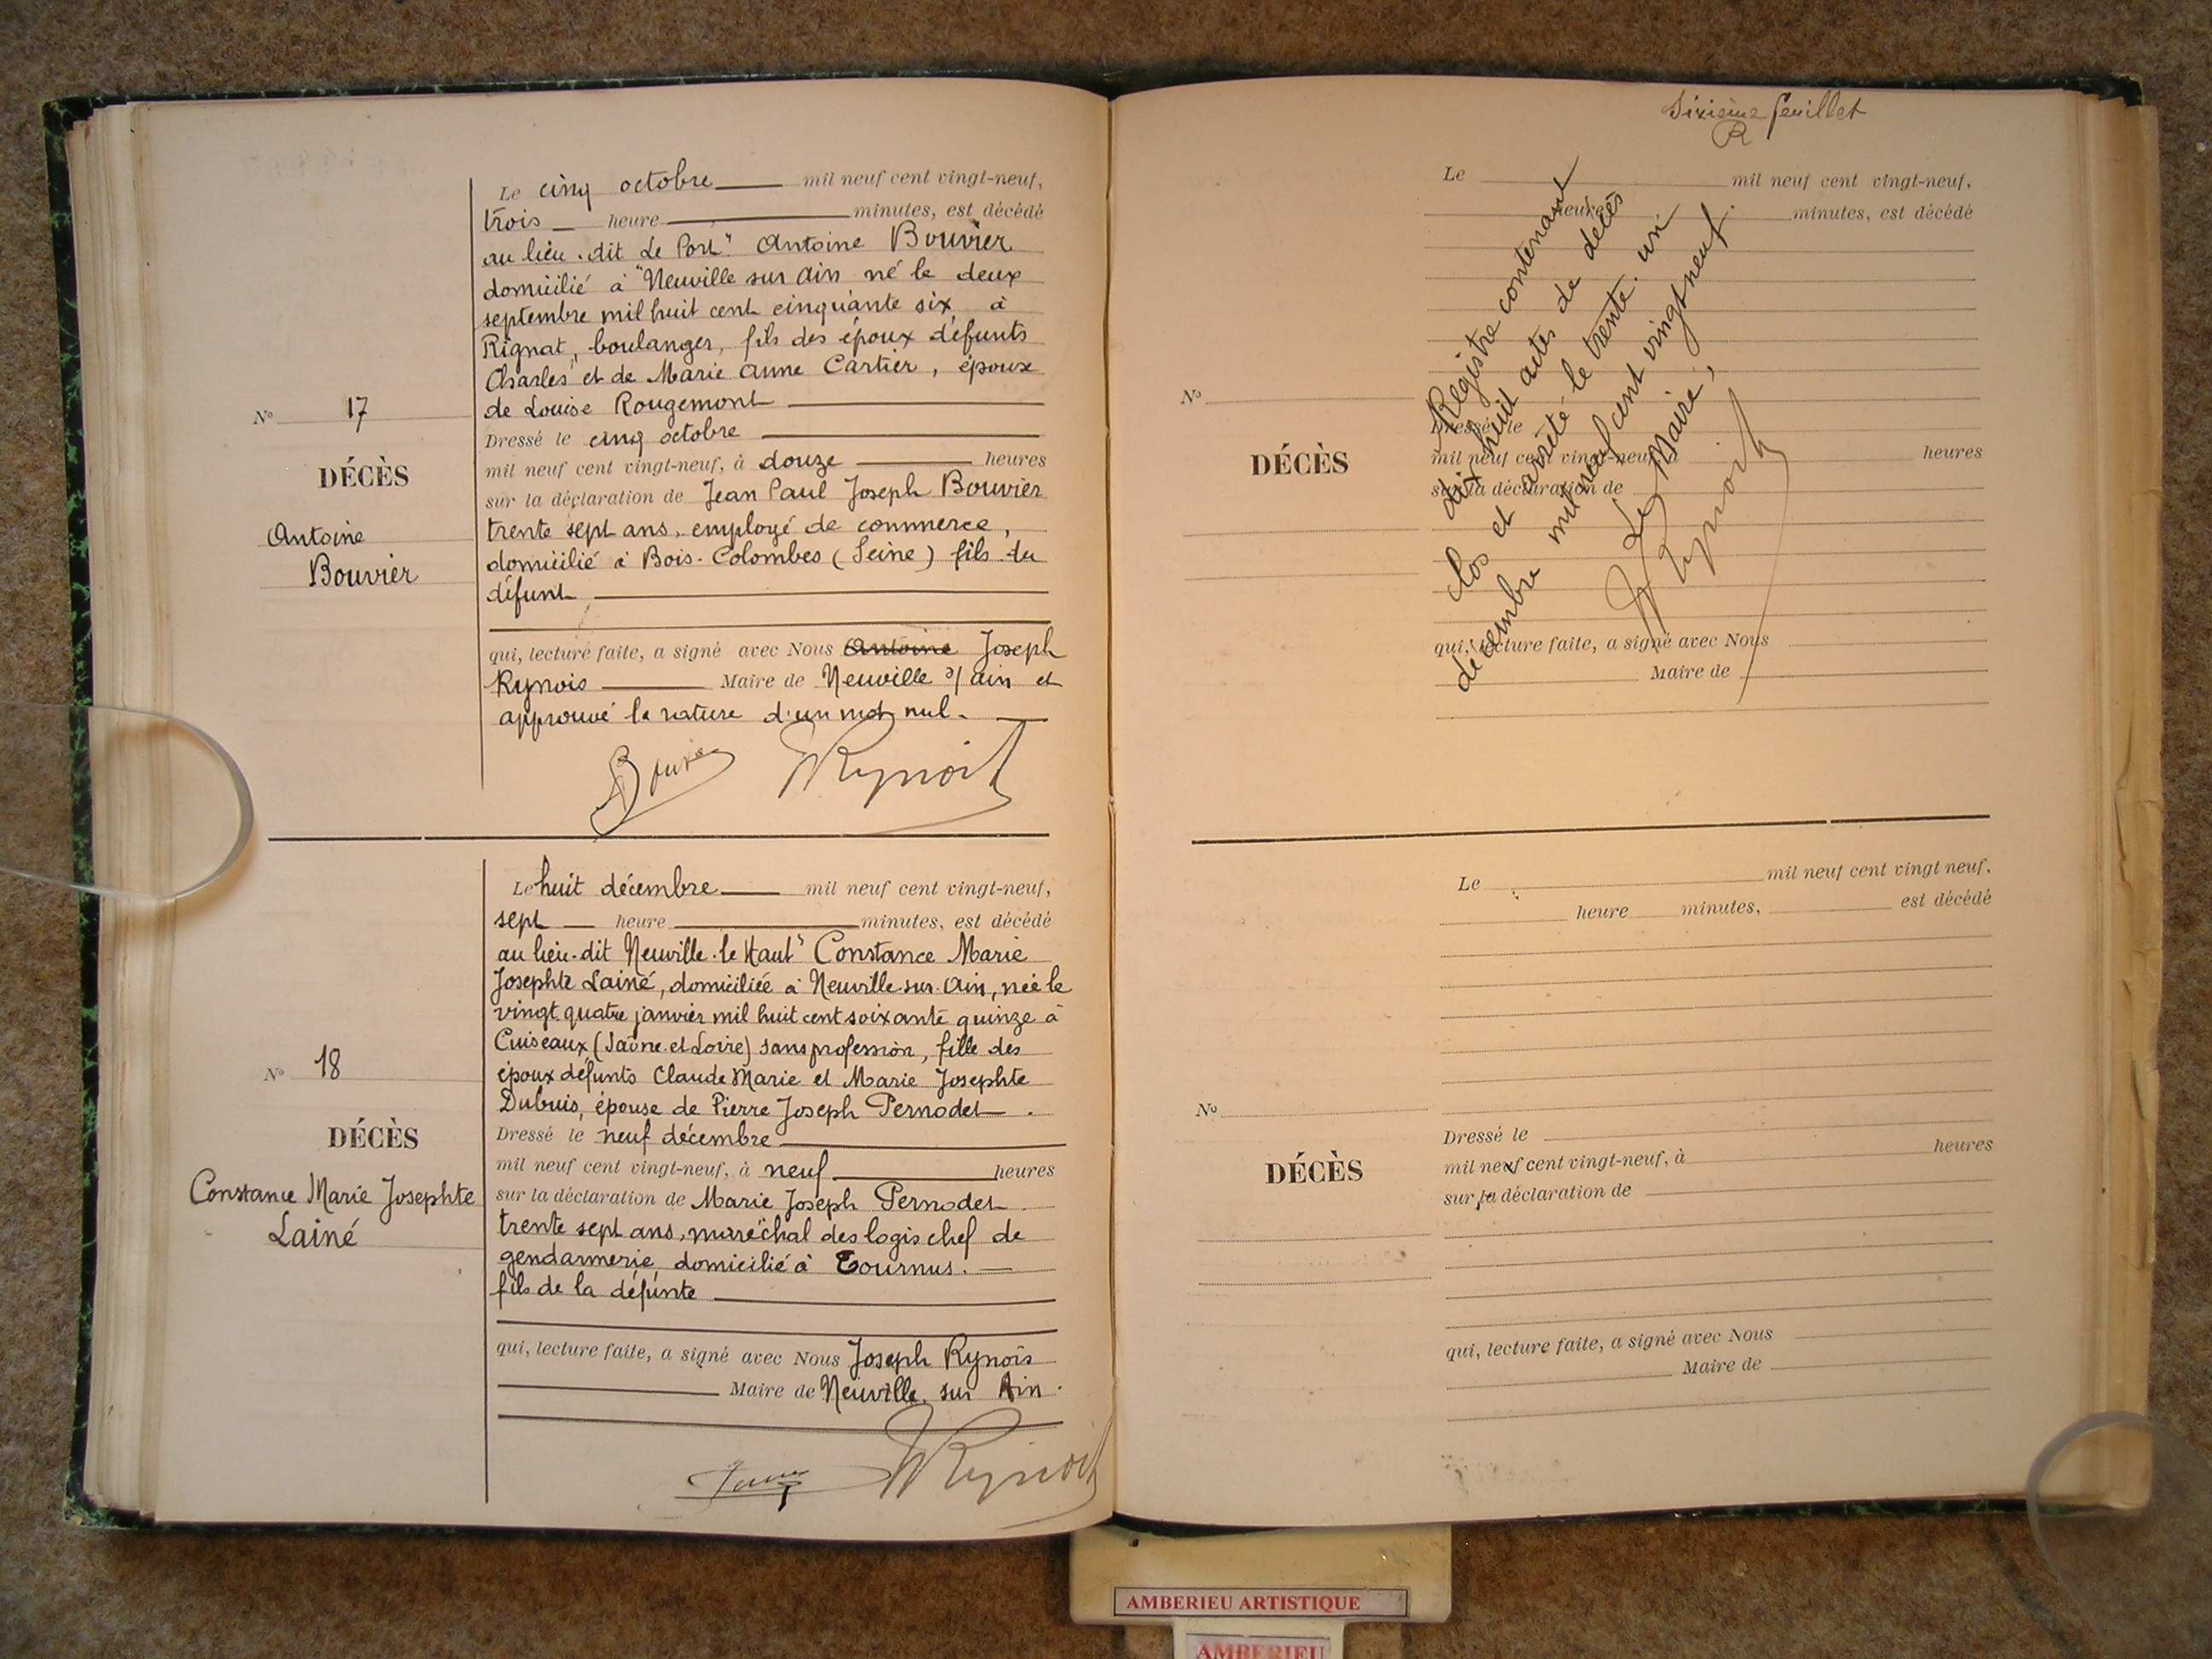 N° 17
DÉCÈS
Antoine
Bouvier
Le cinq octobre mil neuf cent vingt-neuf,
trois heure minutes, est décédé
au lieu-dit Le Port" Antoine Bouvier
domicilié à "Neuville sur Ain né le deux
septembre mil huit cent cinquante six à
Rignat, boulanger, fils des époux défunts
Charles et de Marie Anne Cartier, époux
de Louise Rougemont
Dressé le cinq octobre
mil neuf cent vingt-neuf, à douze heures
sur la déclaration de Jean Paul Joseph Bouvier
trente sept ans, employé de commerce,
domicilié à Bois-Colombes (Seine) fils du
défunt
qui, lecture faite, a signé avec Nous Antoine Joseph
Rynois Maire de Neuville s/ Ain et
approuvé la rature d'un mot nul.
Bouvier Rynois
N° 18
DÉCÈS
Constance Marie Josephte
Lainé
Le huit décembre mil neuf cent vingt-neuf,
sept heure minutes, est décédé
au lieu-dit Neuville-le Haut" Constance Marie
Josephte Lainé, domiciliée à Neuville-sur-Ain, née le
vingt quatre janvier mil huit cent soixante quinze à
Cuiseaux (Saône-et-Loire) sans profession, fille des
époux défunts Claude Marie et Marie Josephte
Dubuis, épouse de Pierre Joseph Pernodet.
Dressé le neuf décembre
mil neuf cent vingt-neuf, à neuf heures
sur la déclaration de Marie Joseph Pernodet
trente sept ans, maréchal des logis chef de
gendarmerie domicilié à Tournus.
fils de la défunte
qui, lecture faite, a signé avec Nous Joseph Rynois
Maire de Neuville sur Ain.
Rynois
Sixième feuillet
R
Le mil neuf cent vingt-neuf,
heure minutes, est décédé
N°
DÉCÈS
Dressé le
mil neuf cent vingt-neuf, à heures
sur la déclaration de
qui, lecture faite, a signé avec Nous
Maire de
Registre contenant
dix huit actes de décès
clos et arrêté le trente-un
décembre mil neuf cent vingt neuf.
Le Maire,
Rynois
Le mil neuf cent vingt neuf,
heure minutes, est décédé
N°
DÉCÈS
Dressé le
mil neuf cent vingt-neuf, à heures
sur la déclaration de
qui, lecture faite, a signé avec Nous
Maire de
AMBERIEU ARTISTIQUE
AMBERIEU